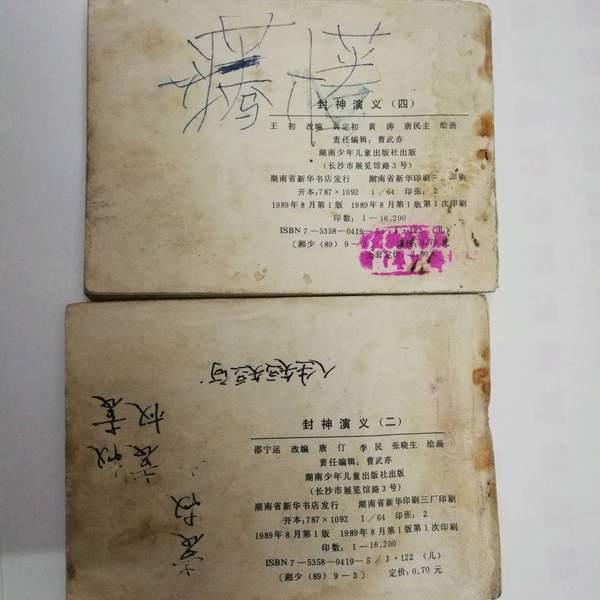 封神演义（四）
王 初 改编 黄定初 黄 涛 唐民主 绘画
责任编辑：曹武亦
湖南少年儿童出版社出版
（长沙市展览馆路3号）
湖南省新华书店发行 湖南省新华印刷三 印刷
开本：787×1092 1／64 印张：2
1989年8月第1版 1989年8月第1版第1次印刷
印数：1—16,200
ISBN 7—5358—0419—5／J·122（儿）
〔湘少（89）9—
定价：0.70元
全套定价：
人生
封神演义（二）
邵宁运 改编 唐 仃 李 民 张晓生 绘画
责任编辑：曹武亦
湖南少年儿童出版社出版
（长沙市展览馆路3号）
湖南省新华书店发行 湖南省新华印刷三厂印刷
开本：787×1092 1／64 印张：2
1989年8月第1版 1989年8月第1版第1次印刷
印数：1—16,200
ISBN 7—5358—0419—5／J·122（儿）
〔湘少（89）9—3〕 定价：0.70元